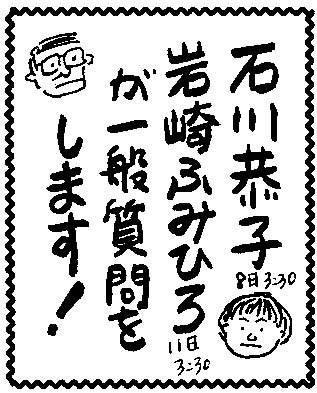 石川恭子
8日3:30
岩崎ふみひろ
11日
3:30
が一般質問を
します!